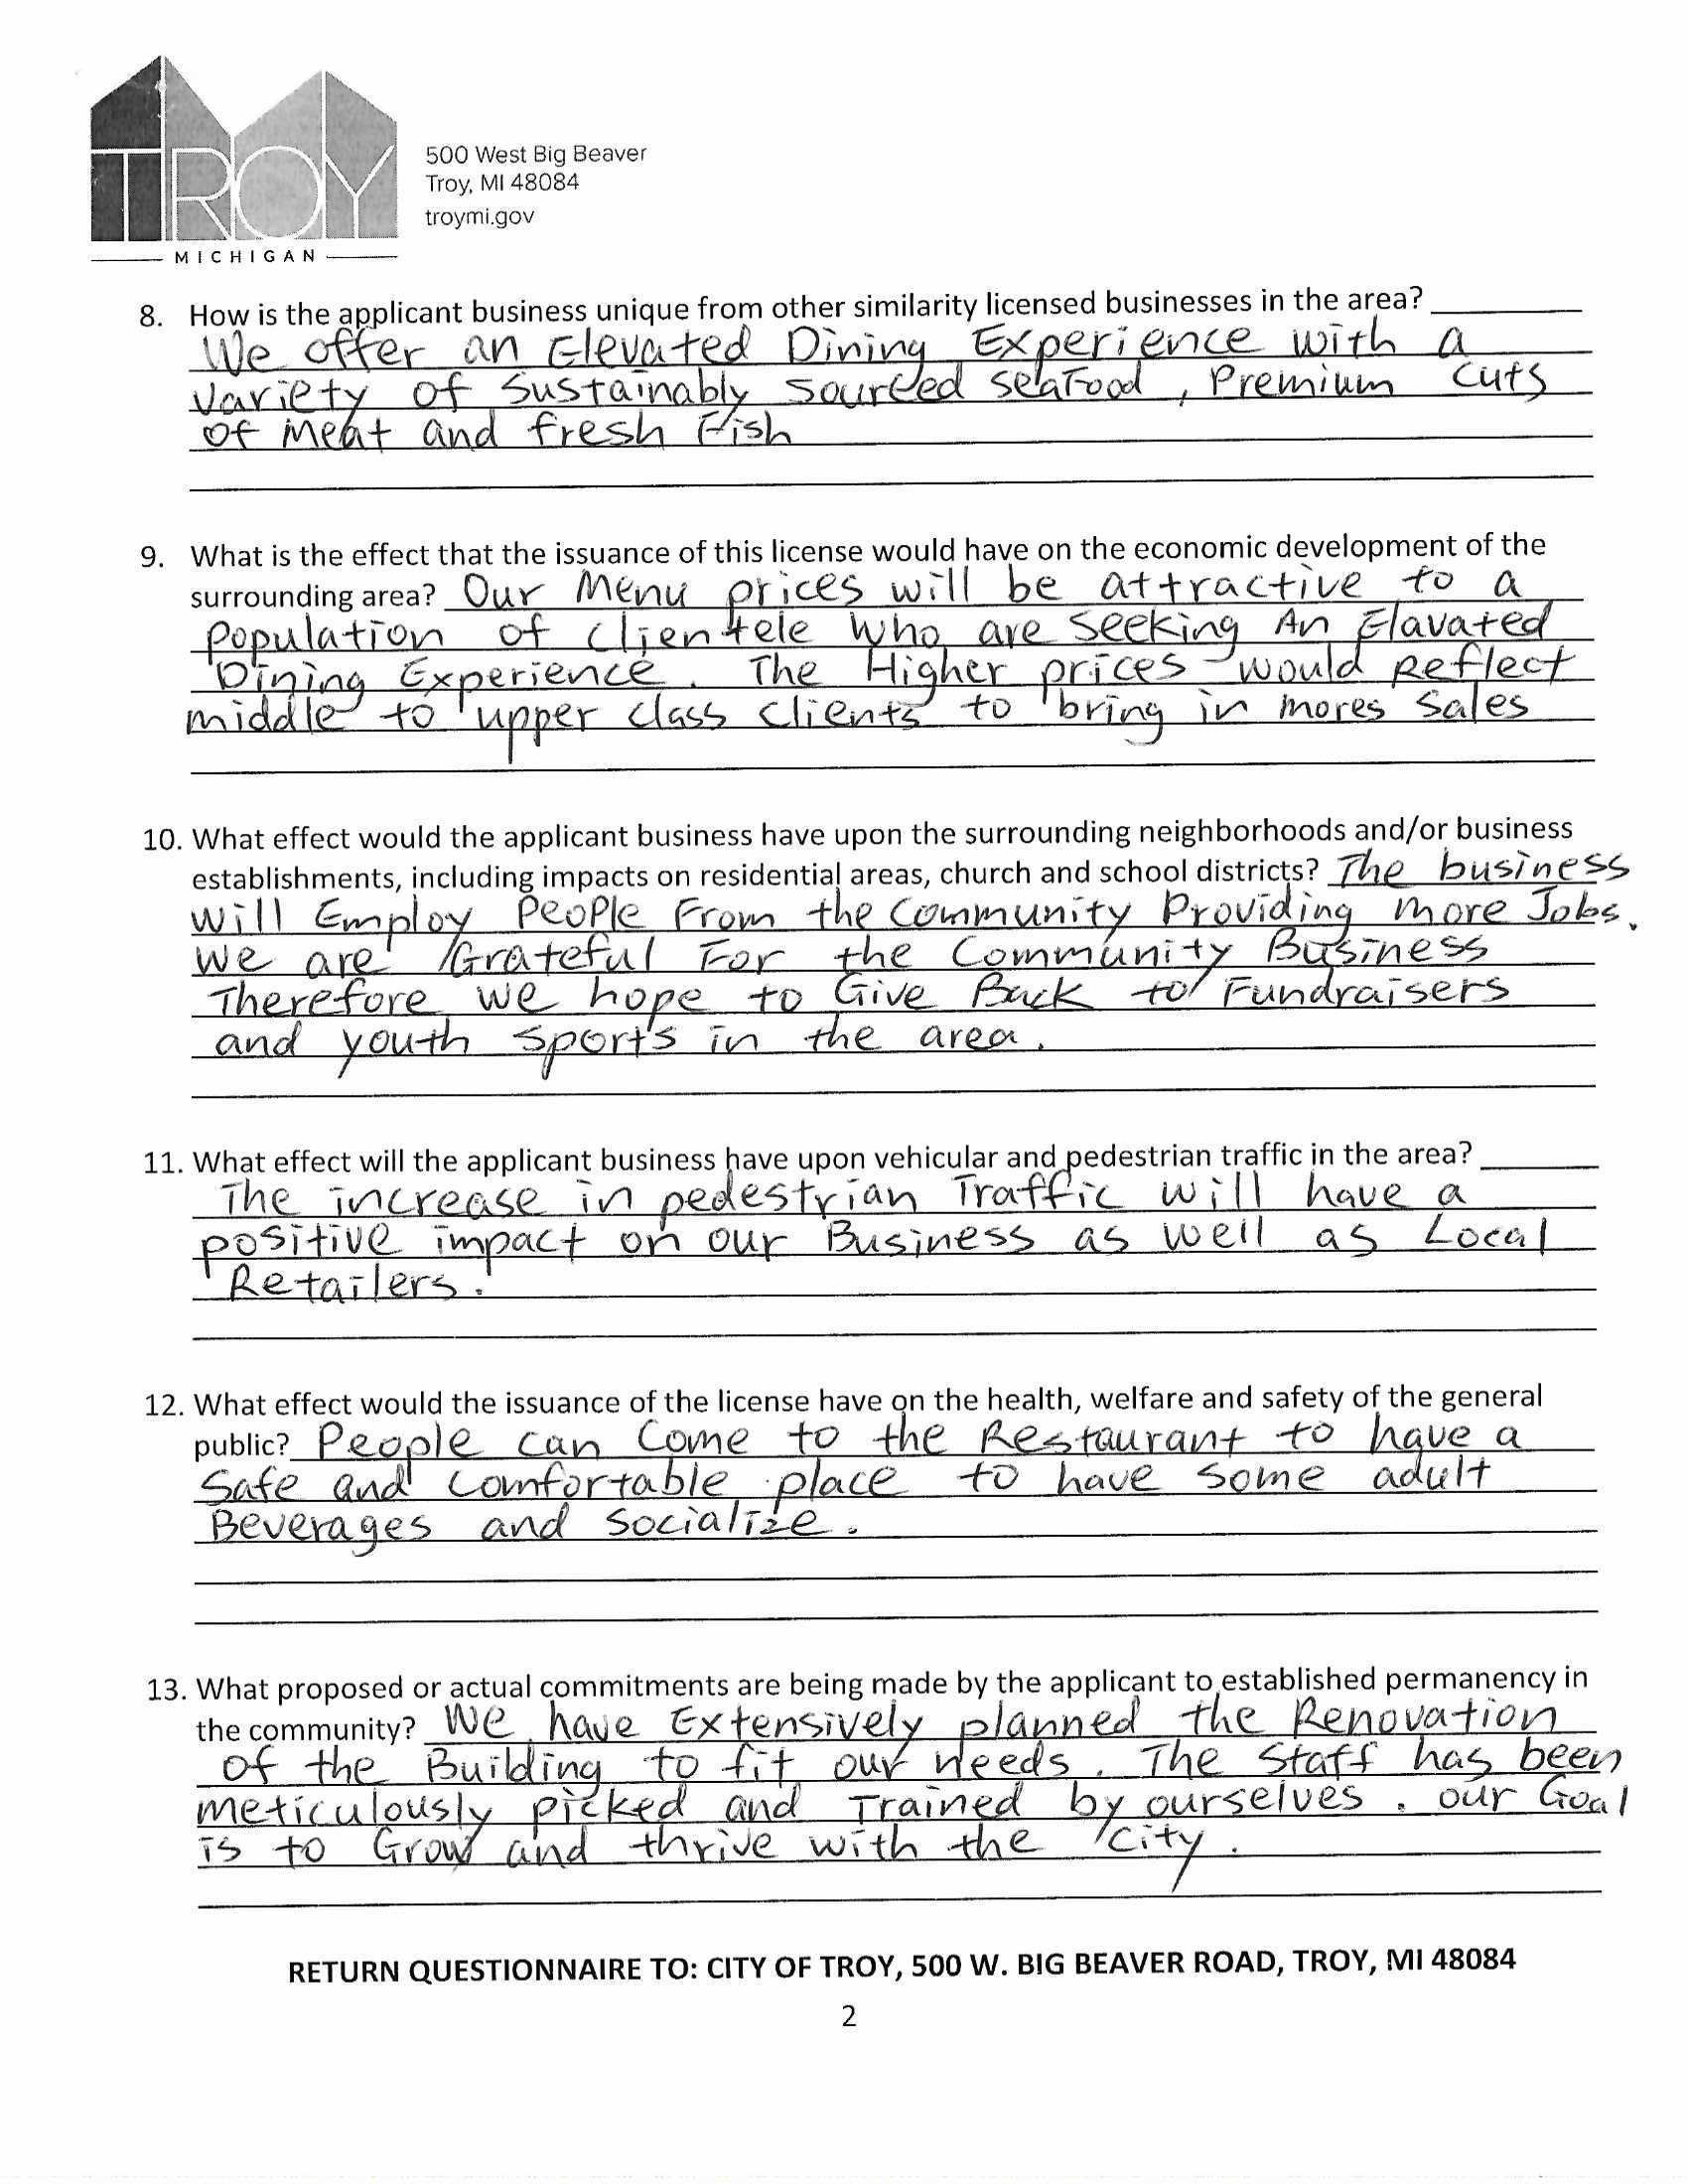 TROY
MICHIGAN
500 West Big Beaver
Troy, MI 48084
troymi.gov
8. How is the applicant business unique from other similarity licensed businesses in the area?
We offer an Elevated Dining Experience with a
Variety of Sustainably sourced seafood, Premium cuts
of meat and fresh Fish
9. What is the effect that the issuance of this license would have on the economic development of the
surrounding area? Our Menu prices will be attractive to a
Population of clientele who are seeking An Elavated
Dining Experience. The Higher prices would Reflect
middle to upper class clients to bring in mores sales
10. What effect would the applicant business have upon the surrounding neighborhoods and/or business
establishments, including impacts on residential areas, church and school districts? The business
will Employ People From the Community Providing more Jobs.
We are Grateful For the Community Business
Therefore we hope to Give Back to Fundraisers
and youth sports in the area.
11. What effect will the applicant business have upon vehicular and pedestrian traffic in the area?
The increase in pedestrian Traffic will have a
positive impact on our Business as well as Local
Retailers.
12. What effect would the issuance of the license have on the health, welfare and safety of the general
public? People can Come to the Restaurant to have a
Safe and Comfortable place to have some adult
Beverages and socialize.
13. What proposed or actual commitments are being made by the applicant to established permanency in
the community? We have Extensively planned the Renovation
of the Building to fit our needs. The Staff has been
meticulously picked and Trained by ourselves. our Goal
is to Grow and thrive with the City.
RETURN QUESTIONNAIRE TO: CITY OF TROY, 500 W. BIG BEAVER ROAD, TROY, MI 48084
2